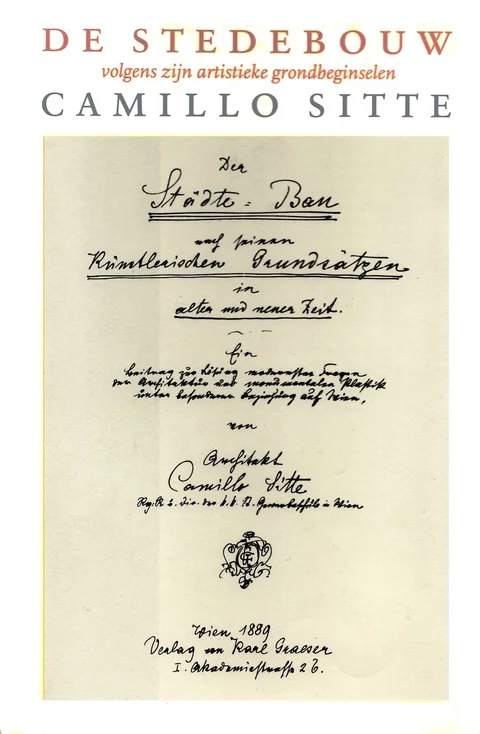 DE STEDEBOUW
volgens zijn artistieke grondbeginselen
CAMILLO SITTE
Der
Städte-Bau
nach seinen
Künstlerischen Grundsätzen
in
alter und neuer Zeit.
Ein
Beitrag zur Lösung modernster Fragen
der Architektur und monumentalen Plastik
unter besonderer Beziehung auf Wien,
von
Architekt
Camillo Sitte
Rg. R. u. Dir. der k. k. St. Gewerbeschule in Wien
Wien 1889
Verlag von Karl Graeser
I. Akademiestrasse 26.